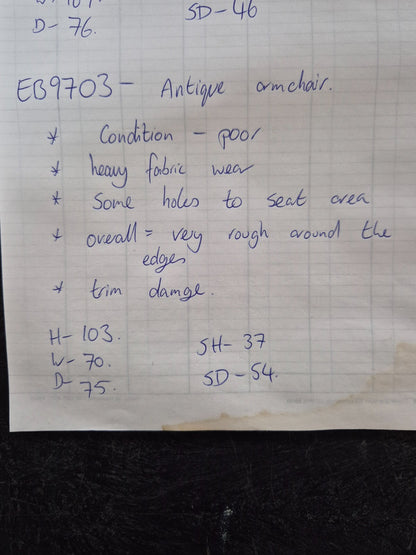 D- 76.
SD-46
EB9703- Antique armchair.
* Condition - poor
* heavy fabric wear
* Some holes to seat area
* overall = very rough around the
edges
* trim damge.
H- 103.
W- 70.
D- 75.
SH- 37
SD-54.